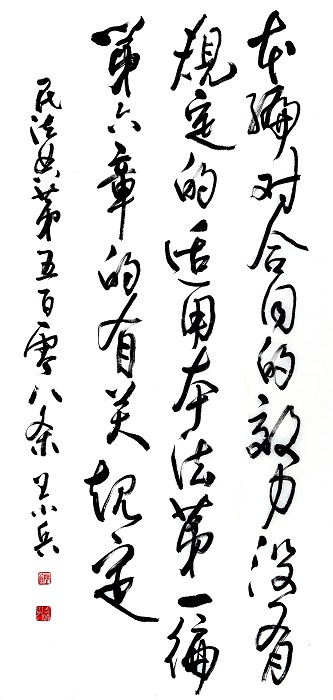 本编对合同的效力没有
规定的适用本法第一编
第六章的有关规定
民法典第五百零八条 王小兵